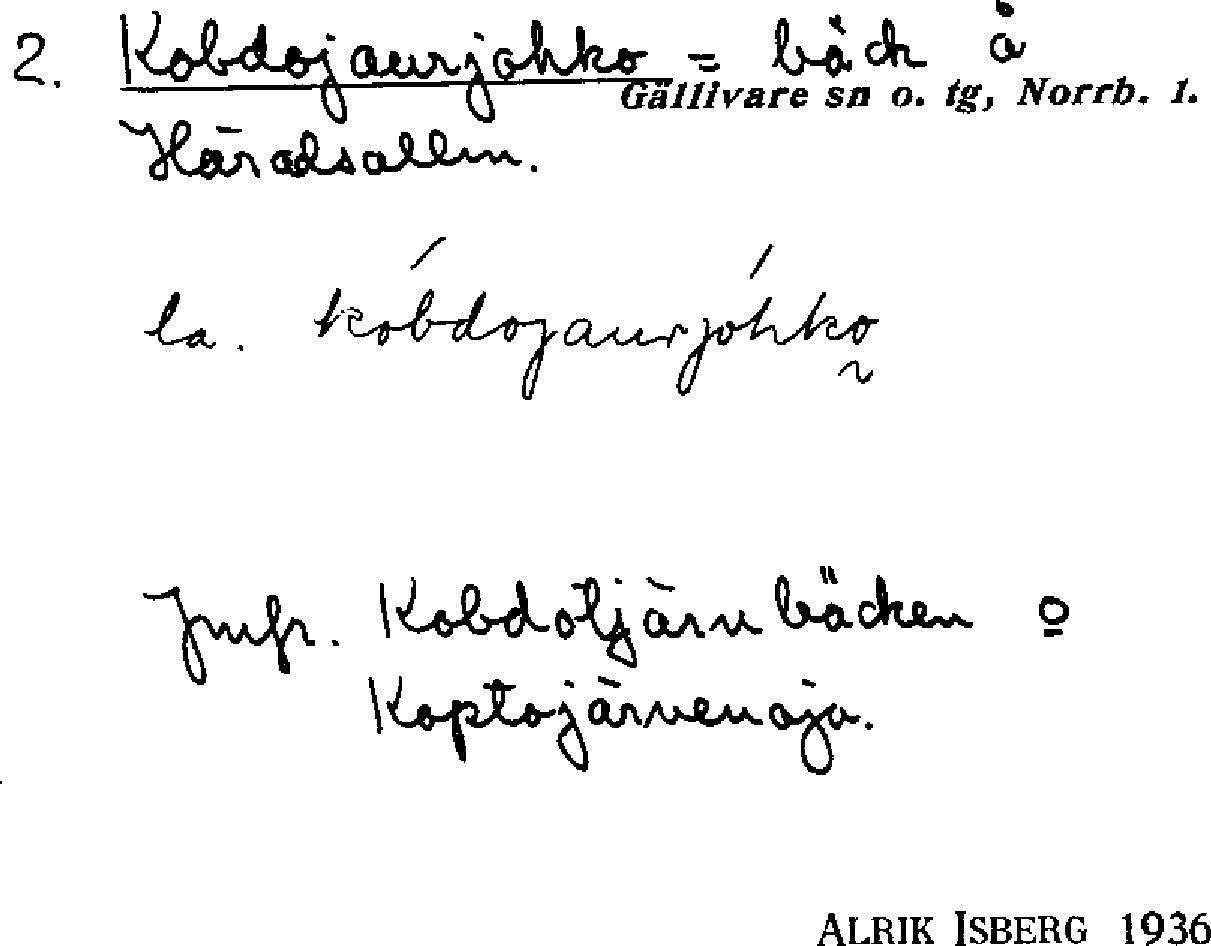 2. Kobdojaurjohko = bäck å
Gällivare sn o. tg, Norrb. l.
Häradsallm.
la. kóbdojaurjóhko
Jmfr. Kobdotjärnbäcken o
Koptojärvenoja.
ALRIK ISBERG 1936